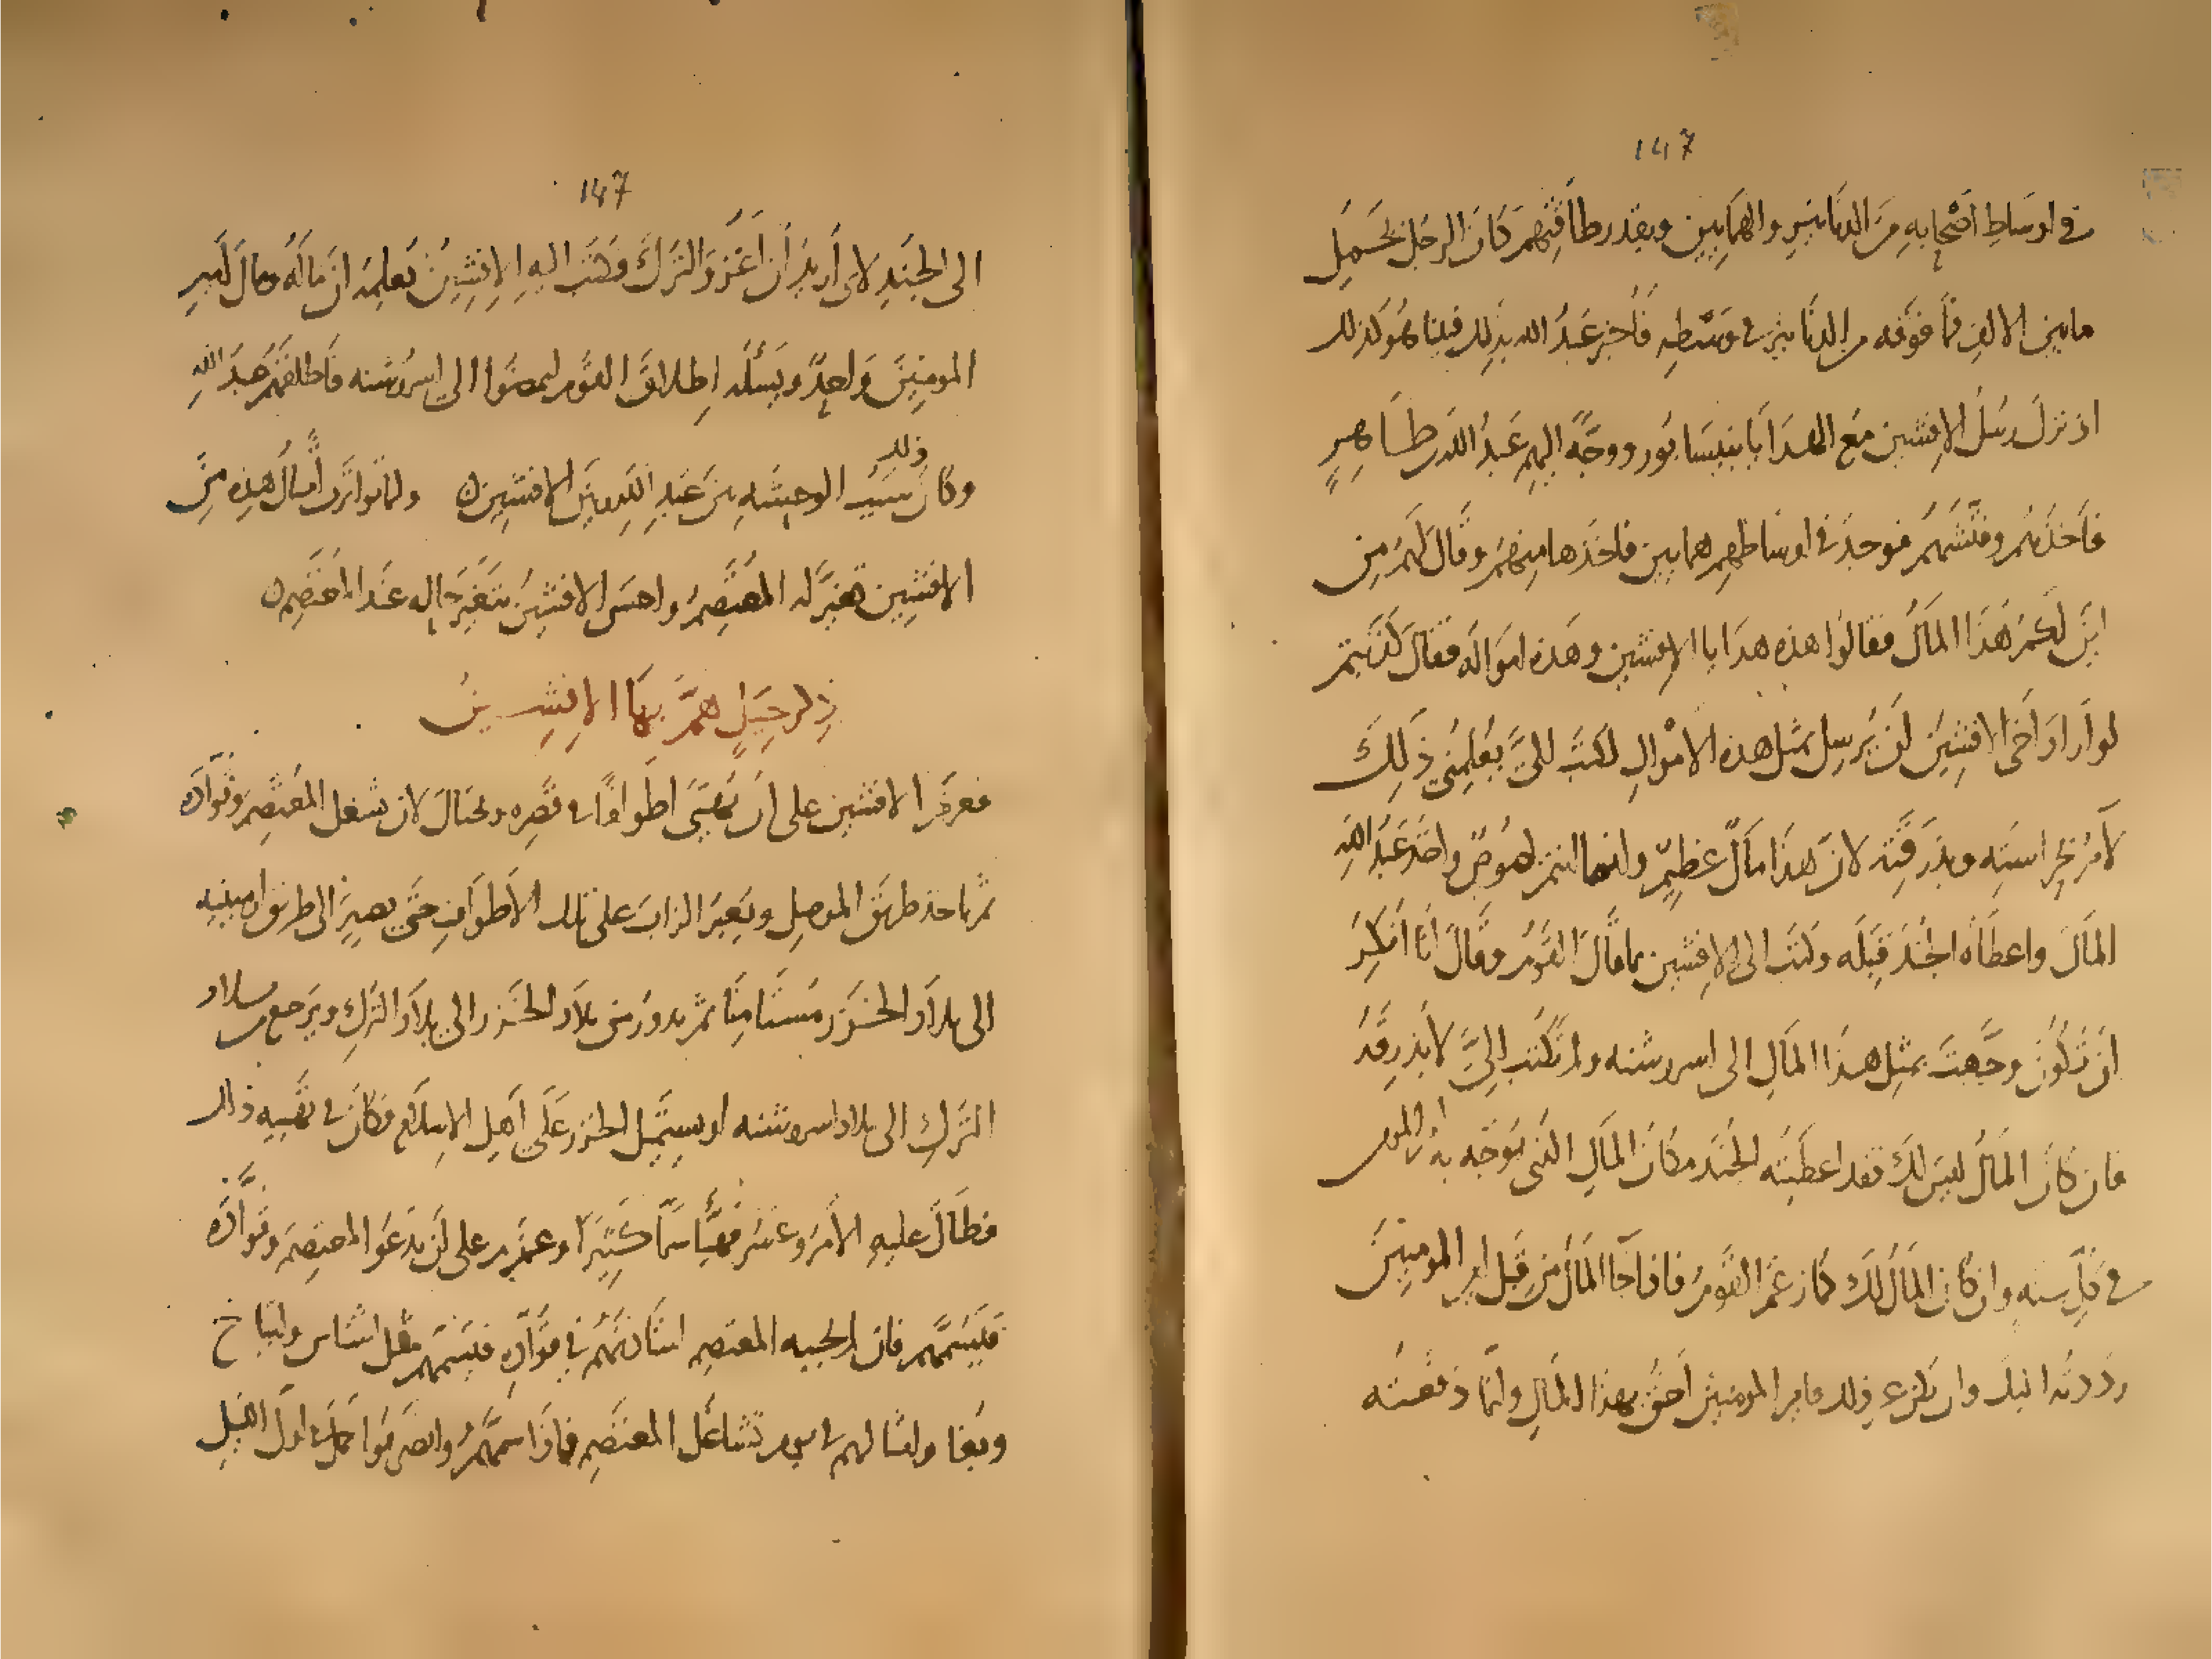 147
في اوساط اصحابه من الدنانير والهمايين وبقدر طاقتهم كان الرجل يحمل
ما بين الالف فما فوقه من الدنانير في وسطه فأخبر عبد الله بذلك فبينا هو كذلك
اذ نزل رسل الافشين مع الهدايا بنيسابور ووجه اليهم عبد الله بن طاهر
فاخذهم وفتشهم فوجد في اوساطهم همايين فاخذها منهم وقال لهم من
اين لكم هذا المال فقالوا هذه هدايا الافشين وهذه امواله فقال كذبتم
لو اراد اخي الافشين ان يرسل بمثل هذه الاموال لكتب الي يعلمني ذلك
لآمر بحراسته وبذرقته لان هذا مال عظيم وانما انتم لصوص واخذ عبد الله
المال واعطاه الجند قبله وكتب الى الافشين بما قال القوم وقال انا انكر
ان تكون وجهت بمثل هذا المال الى اسروشنه ولم تكتب الي لابذرقه
فان كان المال ليس لك فقد اعطيته الجند مكان المال الذي يوجه به امير المو
في كل سنه وان كان المال لك كما زعم القوم فاذا جا المال من قبل امير المومنين
رددته اليك وان يكن غير ذلك فامير المومنين احق بهذا المال وانما دفعته
147
الى الجند لاني أريد أن أغزو الترك فكتب اليه الافشين يعلمه ان ماله ومال امير
المومنين واحد ويسأله اطلاق القوم ليمضوا الى اسروشنه فاطلقهم عبد الله
وكان ذلك سبب الوحشه بين عبد الله وبين الافشين ولما تواترت أمثال هذه من
الافشين تغير له المعتصم واحس الافشين بتغير حاله عند المعتصم
ذكر حيل هم بها الافشين
فعزم الافشين على ان يهيئ اطوافا في قصره ويحتال لان شغل المعتصم وقواده
ثم ياخذ طريق الموصل ويعبر الزاب على تلك الأطواف حتى يصير الى طريق ارمينيه
الى بلاد الخزر مستامنا ثم يدور من بلاد الخزر الى بلاد الترك ويرجع من بلاد
الترك الى بلاد اسروشنه او يستميل الخزر على اهل الاسلام فكان في تهيه ذلك
فطال عليه الأمر وعسر فهيأ سما كثيرا وعزم على ان يدعو المعتصم وقواده
فيسمهم فان لم يجبه المعتصم استاذنهم في قواده فيسمهم مثل اشناس وايتاخ
وبغا وامثالهم في يوم تشاغل المعتصم فاذا سمهم وانصرفوا حمل في اول الليل